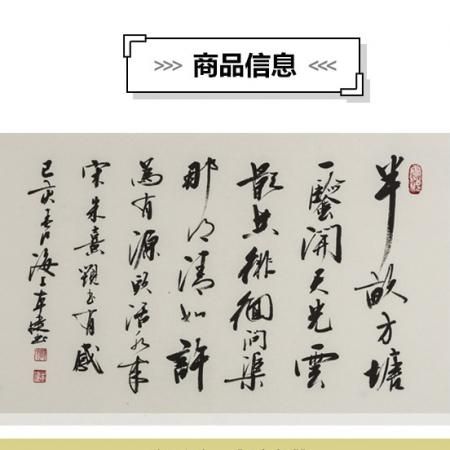 商品信息
半畝方塘
一鑒開天光雲
影共徘徊問渠
那得清如許
為有源頭活水來
宋朱熹觀書有感
己亥春月海上